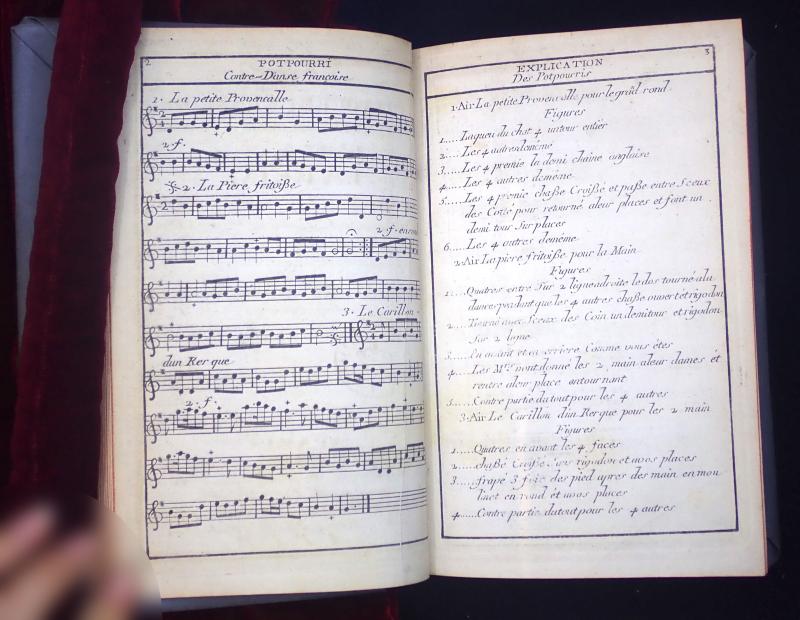 2
POTPOURRÍ
Contre-Danse françoise
1. La petite Provencalle
2 f.
2. La Piere fritoiße
2 f. enson
3. Le Carillon
dun Rerque
2. f.
3
EXPLICATION
Des Potpourris
1. Air La petite Provencalle pour le grãd rond
Figures
1.... Laqueu du chat 4 untour entier
2.... Les 4 autres demême
3.... Les 4 premie la demi chaine anglaise
4.... Les 4 autres demême
5.... Les 4 premie chaße Croißé et paße entre Sceux
des Coité pour retourné aleur places et font un
demi tour Sur places
6.... Les 4 autres demême
2. Air La piere fritoiße pour la Main
Figures
1.... Quatres entre Sur 2 ligne adroite le dos tourné ala
dames pendant que les 4 autres chaße ouvert et rigodon
2.... Tourné avec Sceux des Coin un demitour et rigodon
Sur 2 ligne
3.... En avant et en arriere Comme vous étes
4.... Les Mrs vont donné les 2 main aleur dames et
rentre aleur place entournant
5.... Contre partie du tout pour les 4 autres
3. Air Le Carillon dun Rerque pour les 2 main
Figures
1.... Quatres en avant les 4 faces
2.... chaße Croißé Sans rigodon et avos places
3.... frapé 3 fois des pied apres des main en mou
linet en rond et avos places
4.... Contre partie du tout pour les 4 autres